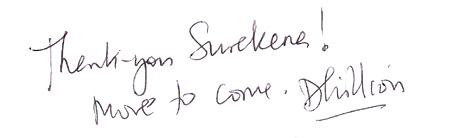 Thank-you Surekena!
More to come. Dhillion